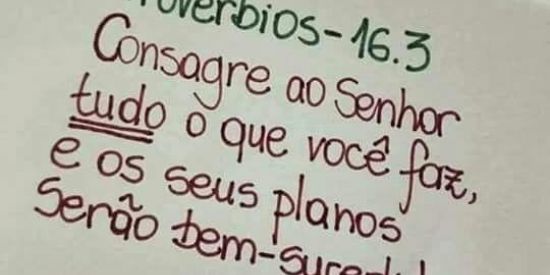 Provérbios-16.3
Consagre ao Senhor
tudo o que você faz,
e os seus planos
serão bem-sucedidos